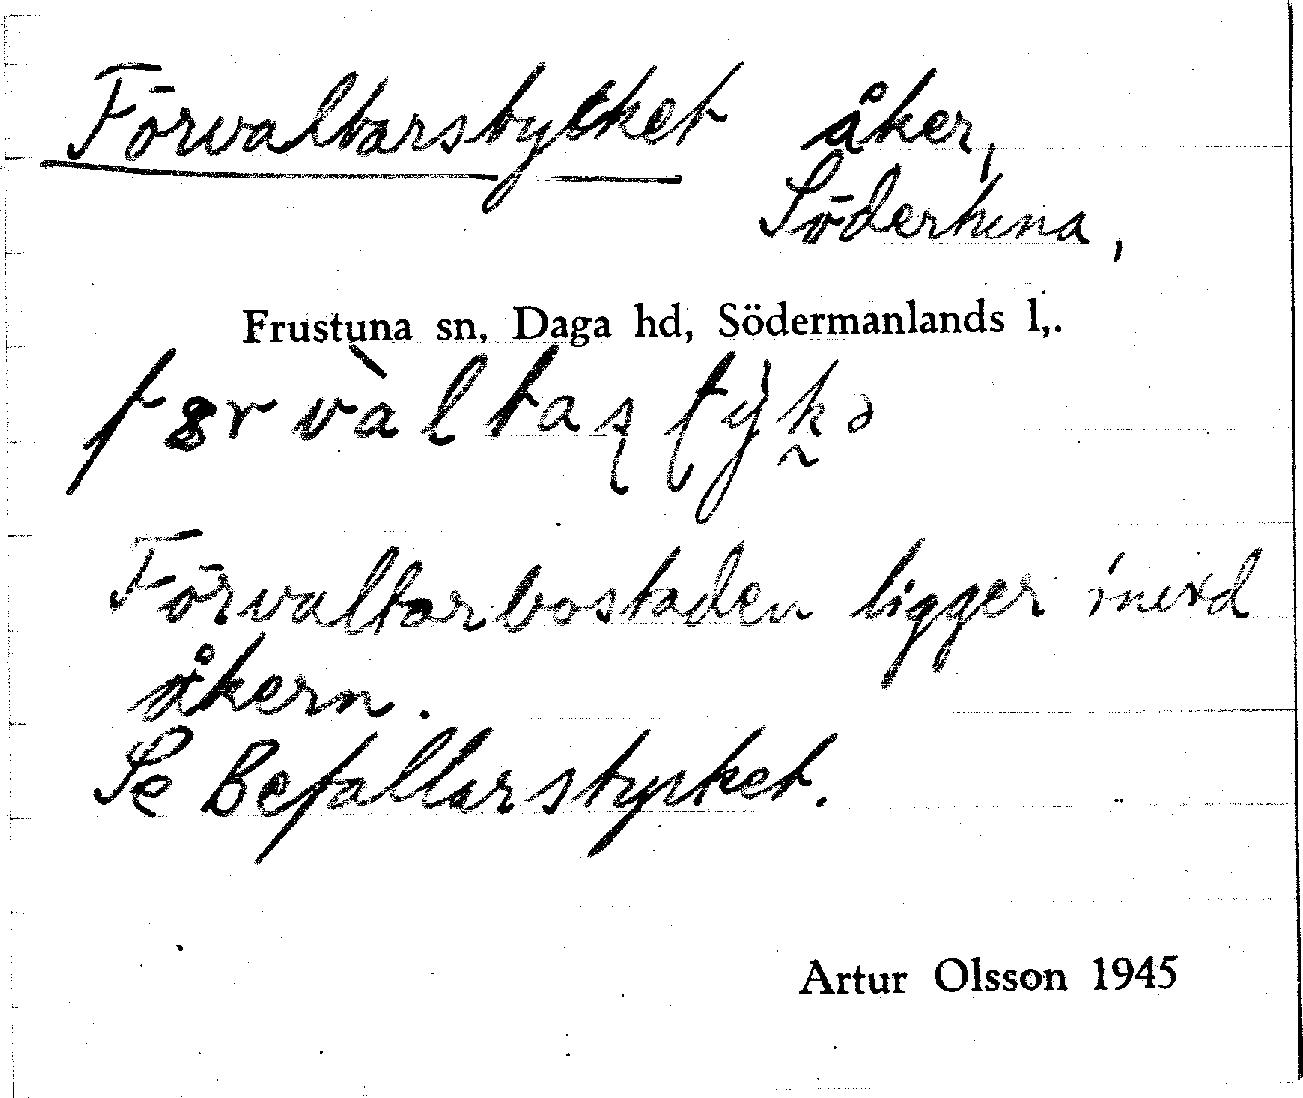 Förvaltarstycket åker,
Södertuna,
Frustuna sn, Daga hd, Södermanlands l,.
Förvaltarbostaden ligger invid
åkern.
Se Befallarstycket.
Artur Olsson 1945